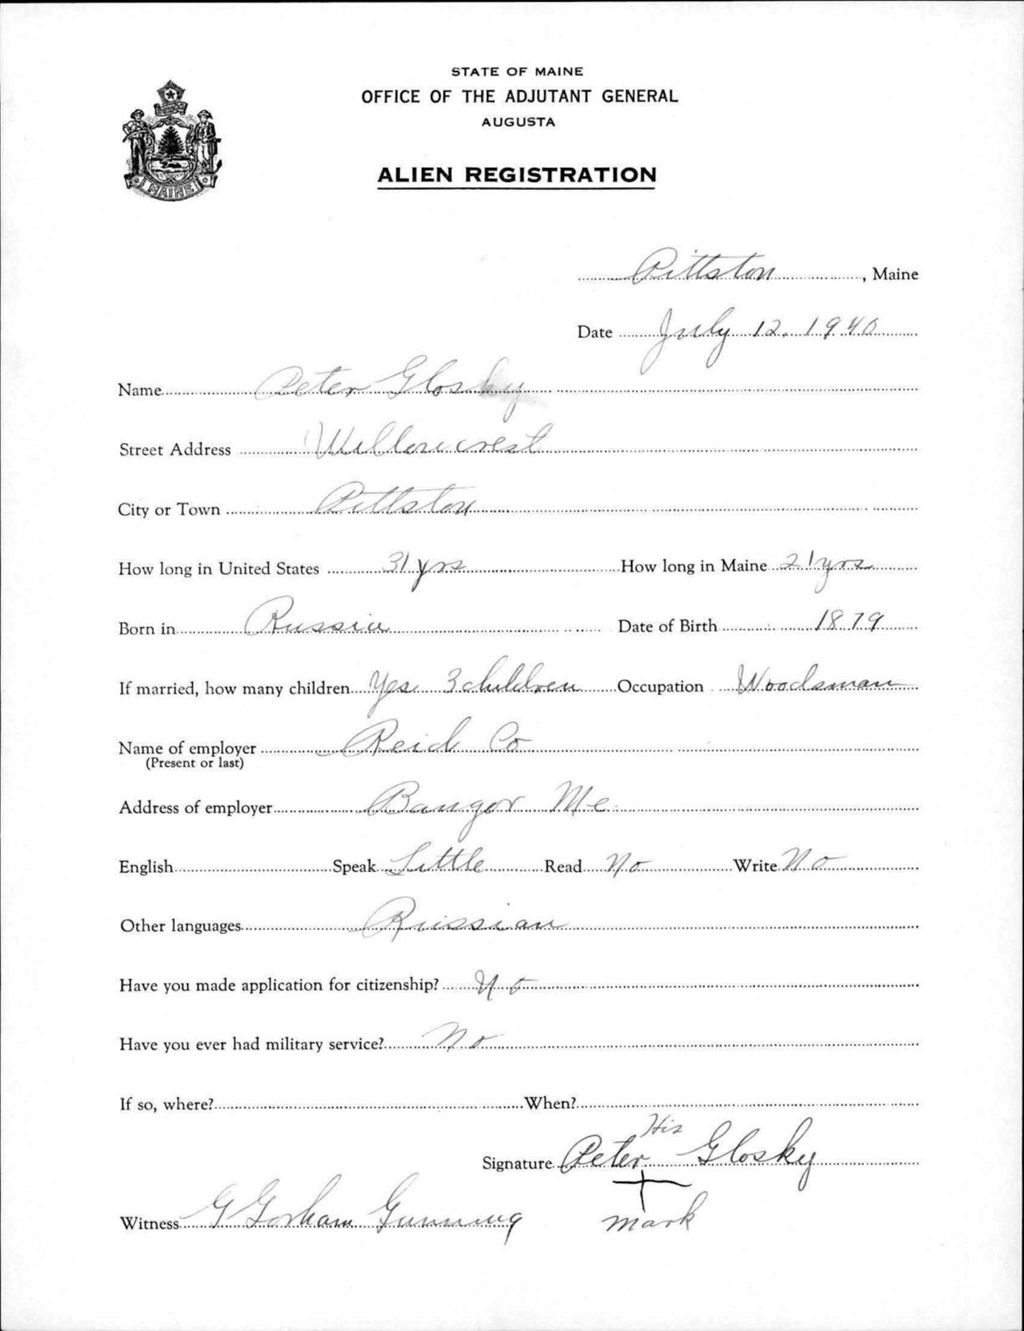 STATE OF MAINE
OFFICE OF THE ADJUTANT GENERAL
AUGUSTA
ALIEN REGISTRATION
MAINE
Pittston, Maine
Date July 12, 1940
Name Peter Glosky
Street Address Willowcrest
City or Town Pittston
How long in United States 31 yrs How long in Maine 21 yrs
Born in Russia Date of Birth 1879
If married, how many children Yes 3 children Occupation Woodsman
Name of employer Reid Co
(Present or last)
Address of employer Bangor Me
English Speak Little Read No Write No
Other languages Russian
Have you made application for citizenship? No
Have you ever had military service? No
If so, where? When?
His
Signature Peter Glosky
Witness G Gorham Gunning mark